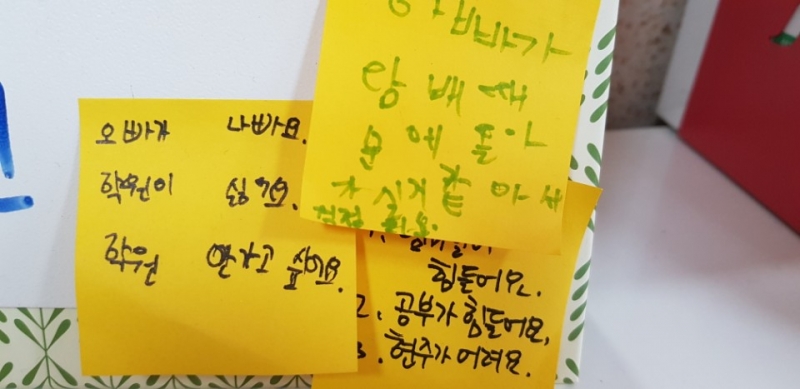 오빠가 나빠요.
학원이 싫어요.
학원 안가고 싶어요.
아빠가
담배때
문에 돌아
가 실거 같 아 서
걱정 돼요.
힘들어요.
2. 공부가 힘들어요.
3. 현주가 어려요.